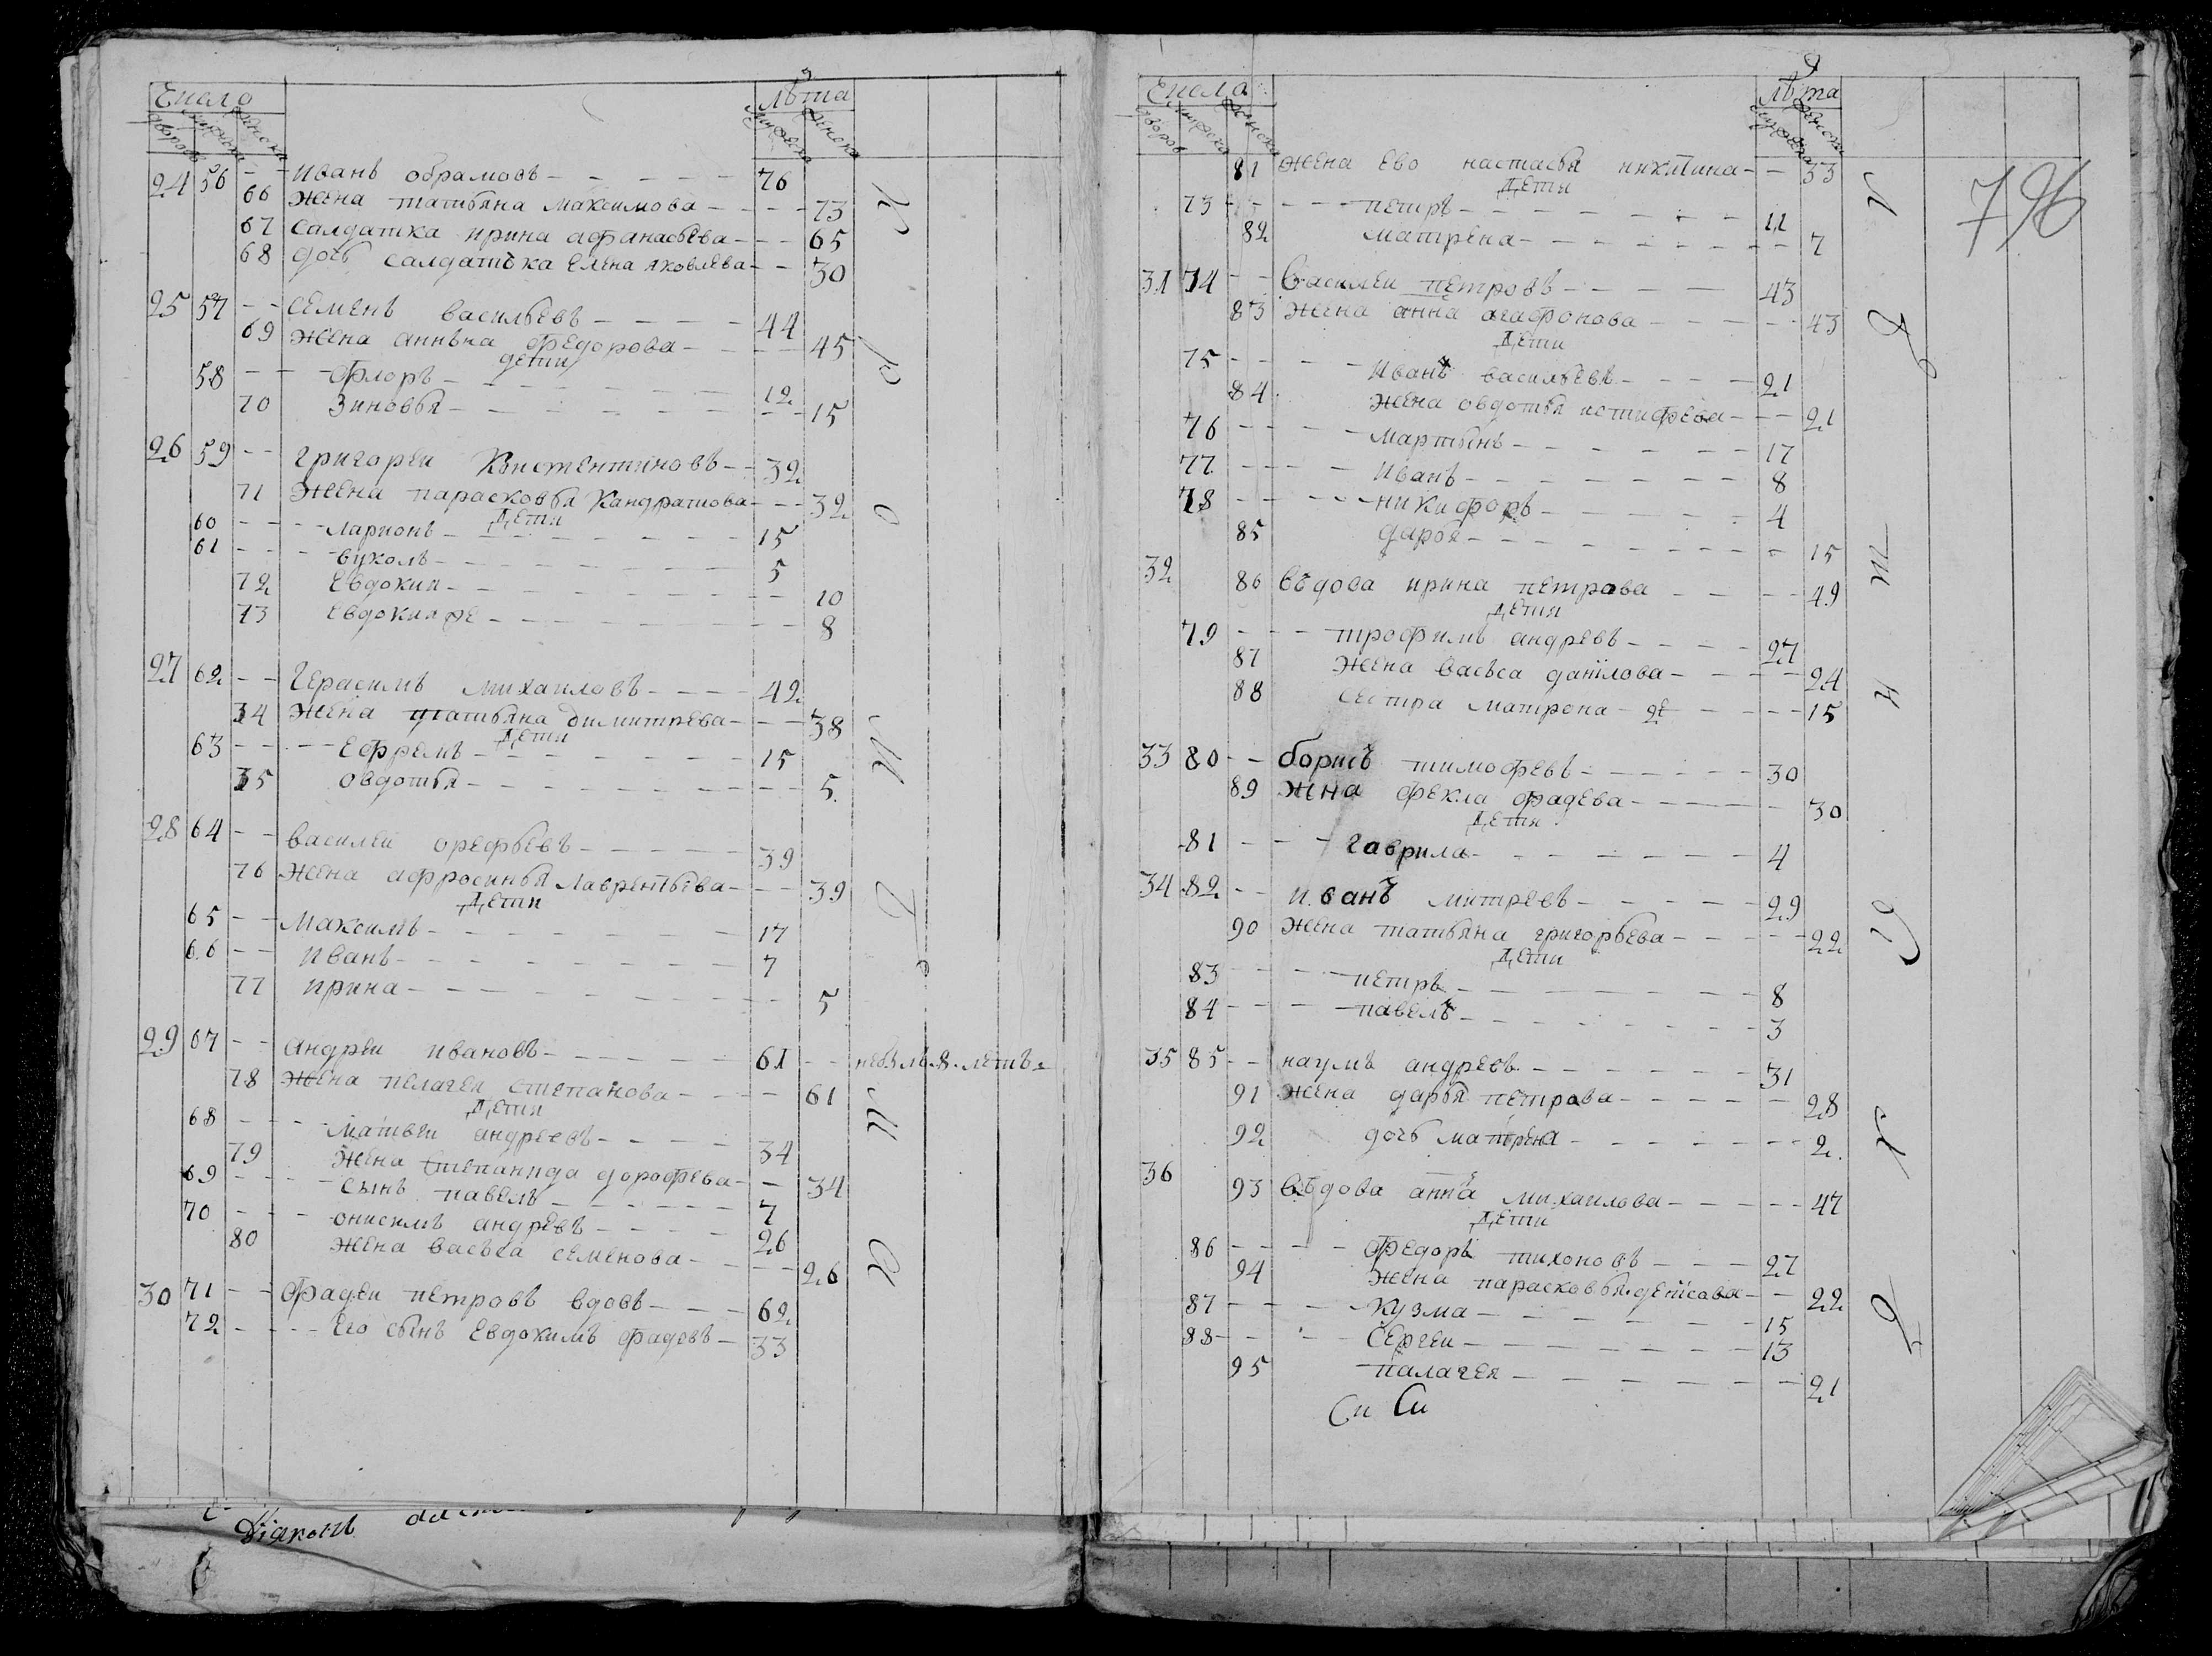 Число Лѣта
дворовъ мужеска женска мужеска женска
24 56 - - Иванъ обрамовъ - - - - - 76
66 жена татьяна максимова - - - - 73
67 салдатка ирина афанасьева - - - 65
68 дочь салдатъка елена яковлева - - 30
25 57 - - Семенъ васильевъ - - - - - 44
69 жена аннъна федорова - - - - 45
дети
58 - - - Флоръ - - - - - - 12
70 Зиновья - - - - - - - - 15
26 59 - - григореи Констентиновъ - - 32
71 жена парасковья Кандратиова - - - 32
дети
60 - - - - ларионъ - - - - - - - 15
61 - - - - вуколъ - - - - - - - 5
72 Евдокия - - - - - - - - 10
73 Евдокия же - - - - - - - - 8
27 62 - - Герасимъ михаиловъ - - - - 42
74 жена татьяна димитрева - - - 38
дети
63 - - - - Ефремъ - - - - - - - 15
75 овдотья - - - - - - - - - 5
28 64 - - василеи орефьевъ - - - - - 39
76 жена афросинья лаврентьева - - - 39
дети
65 - - Максимъ - - - - - - - 17
66 - - Иванъ - - - - - - - - 7
77 ирина - - - - - - - - 5
29 67 - - андреи ивановъ - - - - - - 61 - -
78 жена пелагеи степанова - - - - 61
дети
68 - - - - матвеи андреевъ - - - - - 34
79 жена степанида дорофева - - 34
69 - - - - сынъ павелъ - - - - - - 7
70 - - - онисимъ андревъ - - - - - 26
80 жена васъса семенова - - - - - 26
30 71 - - Фадеи петровъ вдовъ - - - - 62
72 - - - - Его сынъ Евдокимъ фадевъ - 33
Число Лѣта
дворовъ мужеска женска мужеска женска
796
81 жена ево настасья никитина - - 33
дети
73 - - - - - петръ - - - - - - - - 11
82 матрена - - - - - - - - 7
31 74 - - Василеи петровъ - - - - - 43
83 жена анна агафонова - - - - - 43
дети
75 - - - - - Иванъ васильевъ - - - - 21
84 жена овдотья истифеева - - - 21
76 - - - - - мартынъ - - - - - - - 17
77 - - - - - Иванъ - - - - - - - - 8
78 - - - - - никифоръ - - - - - - 4
85 дарья - - - - - - - - - 15
32 86 въдова ирина петрова - - - - 49
дети
79 - - - - трофимъ андревъ - - - - 27
87 жена васъса данилова - - - - - 24
88 сестра матрона - - - - - 15
33 80 - - борисъ тимофевъ - - - - - - 30
89 жена фекла фадева - - - - - - 30
дети
81 - - - - гаврила - - - - - - - 4
34 82 - - иванъ митреевъ - - - - - 29
90 жена татьяна григорьева - - - - - 22
дети
83 - - - - петръ - - - - - - - - 8
84 - - - - павелъ - - - - - - - - 3
35 85 - - наумъ андреевъ - - - - - - 31
91 жена дарья петрова - - - - - - 28
92 дочь матрена - - - - - - - 2
36 93 въдова анна михаилова - - - - - 47
дети
86 - - - - федоръ тихоновъ - - - 27
94 жена парасковья денисова - - 22
87 - - - - Кузма - - - - - - - - 15
88 - - - - Сергеи - - - - - - - - 13
95 палагея - - - - - - - 21
Дїяконъ